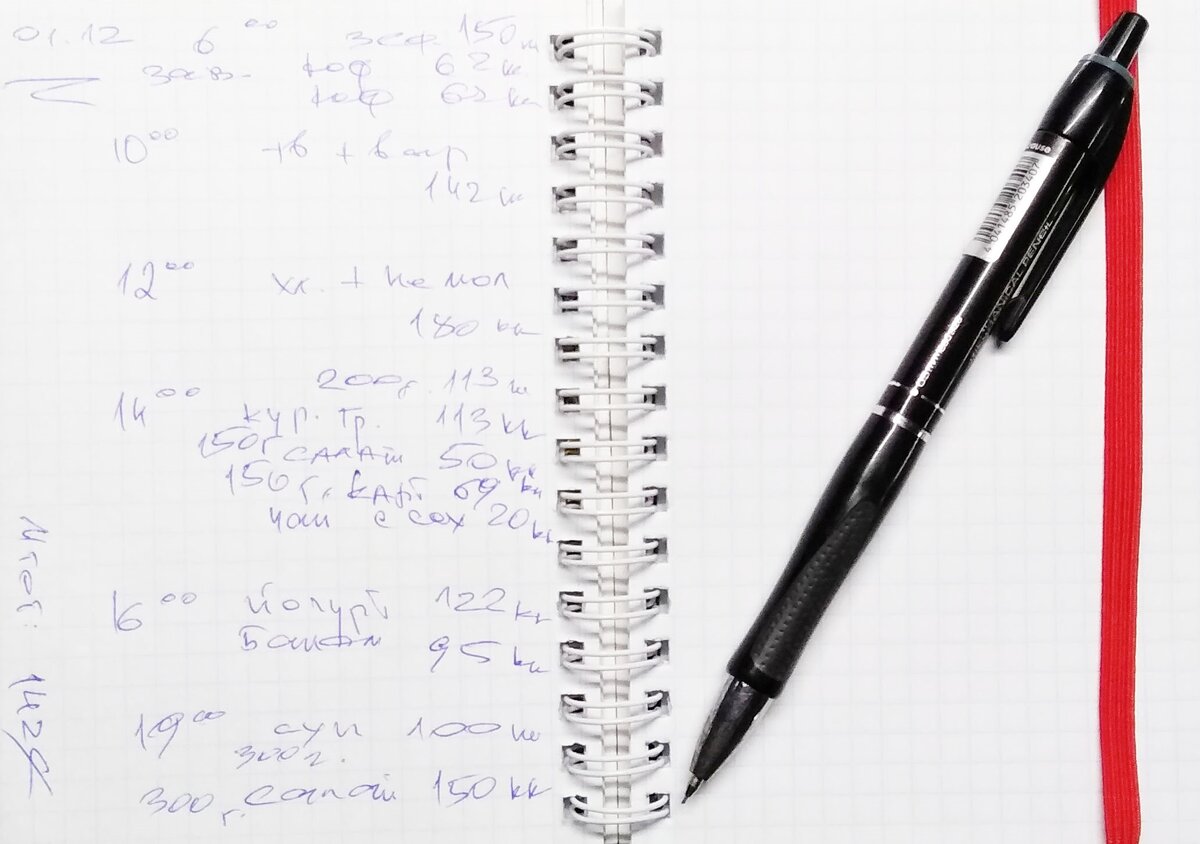 01.12 6 00 зеф. 150 кк
зав. коф 62 к
коф 62 кк
10 00 тв + вар
142 кк
12 00 хл. +
180 кк
200г. 113 кк
14 00 кур. гр. 113 кк
150г салат 50 кк
150 г. карт 69 кк
чай с сах 20 кк
16 00 йогурт 122 кк
Банан 95 кк
19 00 суп 100 кк
300 г.
300 г. салат 150 кк
Итог: 1428
house
4 041485 203407
MECHANICAL PENCIL